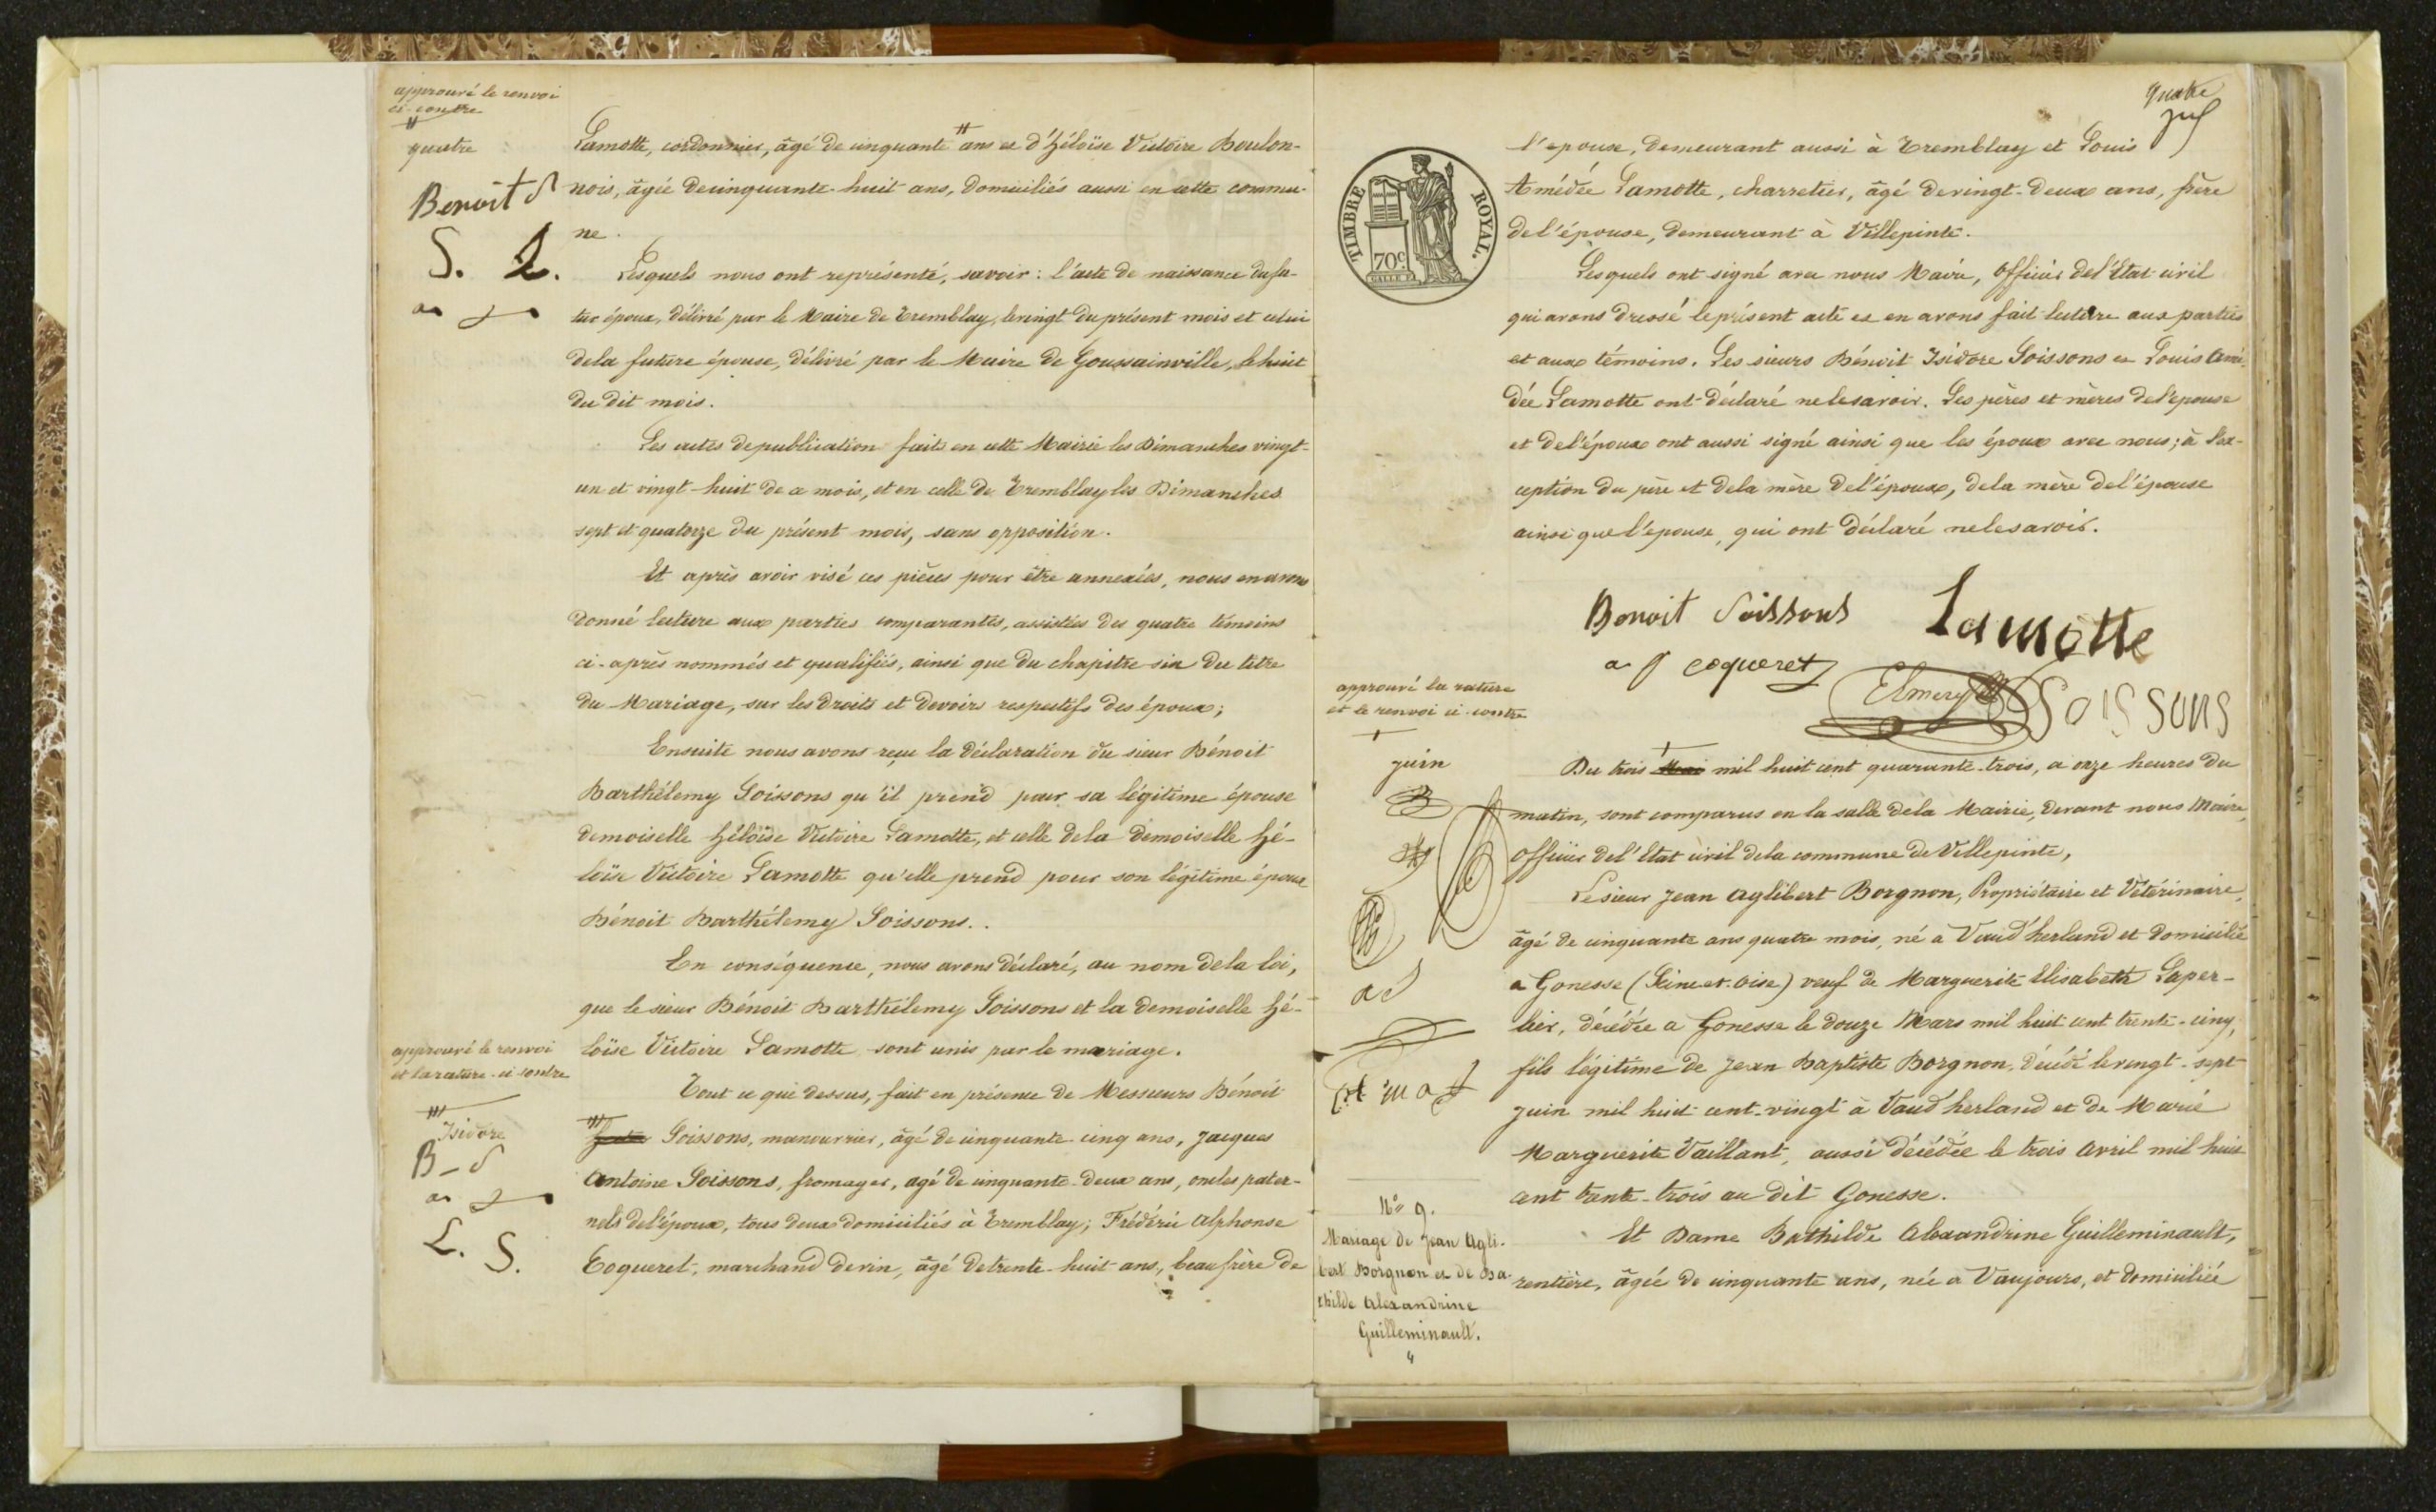 approuvé le renvoi
ci-contre
quatre
Benoit S
S. L.
Lamotte, cordonnier, âgé de cinquante ans et d'Héloïse Victoire Boulon-
nois, âgée de cinquante-huit ans, domiciliés aussi en cette commu-
ne.
Lesquels nous ont représenté, savoir : l'acte de naissance du fu-
tur époux, délivré par le Maire de Tremblay, le vingt du présent mois et celui
de la future épouse, délivré par le Maire de Goussainville, le huit
du dit mois.
Les actes de publication faits en cette Mairie les Dimanches vingt-
un et vingt-huit de ce mois, et en celle de Tremblay les Dimanches
sept et quatorze du présent mois, sans opposition.
Et après avoir visé ces pièces pour être annexées, nous en avons
donné lecture aux parties comparantes, assistées des quatre témoins
ci-après nommés et qualifiés, ainsi que du chapitre six du titre
du Mariage, sur les droits et devoirs respectifs des époux;
Ensuite nous avons reçu la déclaration du sieur Bénoit
Barthélemy Soissons qu'il prend pour sa légitime épouse
demoiselle Héloïse Victoire Lamotte, et celle de la demoiselle Hé-
loïse Victoire Lamotte qu'elle prend pour son légitime époux
Bénoit Barthélemy Soissons..
En conséquence, nous avons déclaré, au nom de la loi,
que le sieur Bénoit Barthélemy Soissons et la demoiselle Hé-
loïse Victoire Lamotte sont unis par le mariage.
approuvé le renvoi
et la rature ci-contre
Isidore
B-S
L. S.
Tout ce que dessus, fait en présence de Messieurs Bénoit
Soissons, manouvrier, âgé de cinquante cinq ans, Jacques
Antoine Soissons, fromager, agé de cinquante-deux ans, oncles pater-
nels de l'époux, tous deux domiciliés à Tremblay; Frédéric Alphonse
Coqueret, marchand de vin, âgé de trente-huit ans, beau frère de
quatre
l'epoux, demeurant aussi à Tremblay et Louis
Amédée Lamotte, charretier, âgé de vingt-deux ans, frère
de l'épouse, demeurant à Villepinte.
TIMBRE ROYAL.
70c
Lesquels ont signé avec nous Maire, Officier de l'Etat civil
qui avons dressé le présent acte et en avons fait lecture aux parties
et aux témoins. Les sieurs Bénoit Isidore Soissons et Louis Amé-
dée Lamotte ont déclaré ne le savoir. Les pères et mères de l'epouse
et de l'époux ont aussi signé ainsi que les époux avec nous; à l'ex-
ception du père et de la mère de l'époux, de la mère de l'épouse
ainsi que l'epouse, qui ont déclaré ne le savoir.
Benoit Soissons Lamotte
coqueret
Soissons
approuvé la rature
et le renvoi ci-contre
juin
Du trois mil huit cent quarante-trois, a onze heures du
matin, sont comparus en la salle de la Mairie, devant nous Maire,
Officier de l'Etat civil de la commune de Villepinte,
Le sieur Jean Aglibert Borgnon, Propriétaire et Vétérinaire,
âgé de cinquante ans quatre mois, né a Vaud'herland et domicilié
a Gonesse (Seine et Oise) veuf de Marguerite Elisabeth Laper-
lier, décédée a Gonesse le douze Mars mil huit cent trente-cinq,
fils légitime de Jean Baptiste Borgnon, décédé le vingt-sept
juin mil huit cent-vingt à Vaud'herland et de Marie
Marguerite Vaillant, aussi décédée le trois avril mil huit
cent trente-trois au dit Gonesse.
Et Dame Bathilde Alexandrine Guilleminault,
rentière, âgée de cinquante ans, née a Vaujours, et domiciliée
No 9.
Mariage de Jean Agli-
bert Borgnon et de Ba-
thilde Alexandrine
Guilleminault.